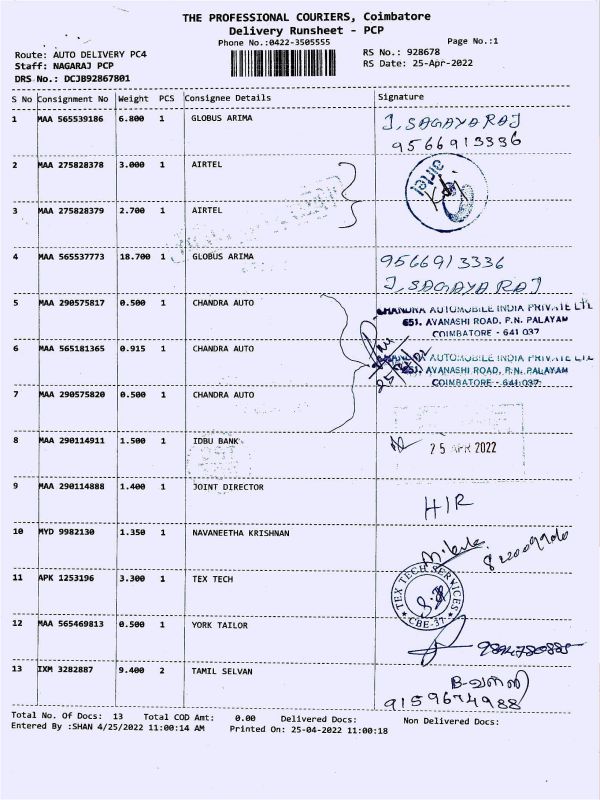 THE PROFESSIONAL COURIERS, Coimbatore
Delivery Runsheet - PCP
Phone No.:0422-3505555
Page No.:1
Route: AUTO DELIVERY PC4
RS No.: 928678
Staff: NAGARAJ PCP
RS Date: 25-Apr-2022
DRS No.: DCJB92867801
S No Consignment No Weight PCS Consignee Details Signature
1 MAA 565539186 6.800 1 GLOBUS ARIMA J. SAGAYARAJ
9566913336
2 MAA 275828378 3.000 1 AIRTEL airtel
3 MAA 275828379 2.700 1 AIRTEL
4 MAA 565537773 18.700 1 GLOBUS ARIMA 9566913336
J. SAGAYARAJ
5 MAA 290575817 0.500 1 CHANDRA AUTO CHANDRA AUTOMOBILE INDIA PRIVATE LTD
651, AVANASHI ROAD, P.N. PALAYAM
COIMBATORE - 641 037
6 MAA 565181365 0.915 1 CHANDRA AUTO CHANDRA AUTOMOBILE INDIA PRIVATE LTD
651, AVANASHI ROAD, P.N. PALAYAM
COIMBATORE - 641 037
7 MAA 290575820 0.500 1 CHANDRA AUTO
8 MAA 290114911 1.500 1 IDBU BANK 25 APR 2022
9 MAA 290114888 1.400 1 JOINT DIRECTOR HIR
10 MYD 9982130 1.350 1 NAVANEETHA KRISHNAN
11 APK 1253196 3.300 1 TEX TECH TEX TECH SERVICES
CBE-37
12 MAA 565469813 0.500 1 YORK TAILOR
13 IXM 3282887 9.400 2 TAMIL SELVAN
9159674988
Total No. Of Docs: 13 Total COD Amt: 0.00 Delivered Docs: Non Delivered Docs:
Entered By :SHAN 4/25/2022 11:00:14 AM Printed On: 25-04-2022 11:00:18